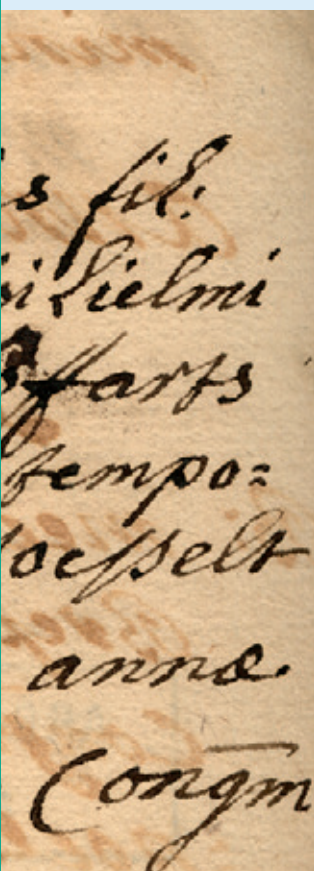 s fil:
lielmi
ffarts
tempo=
oesselt
annæ
Congm